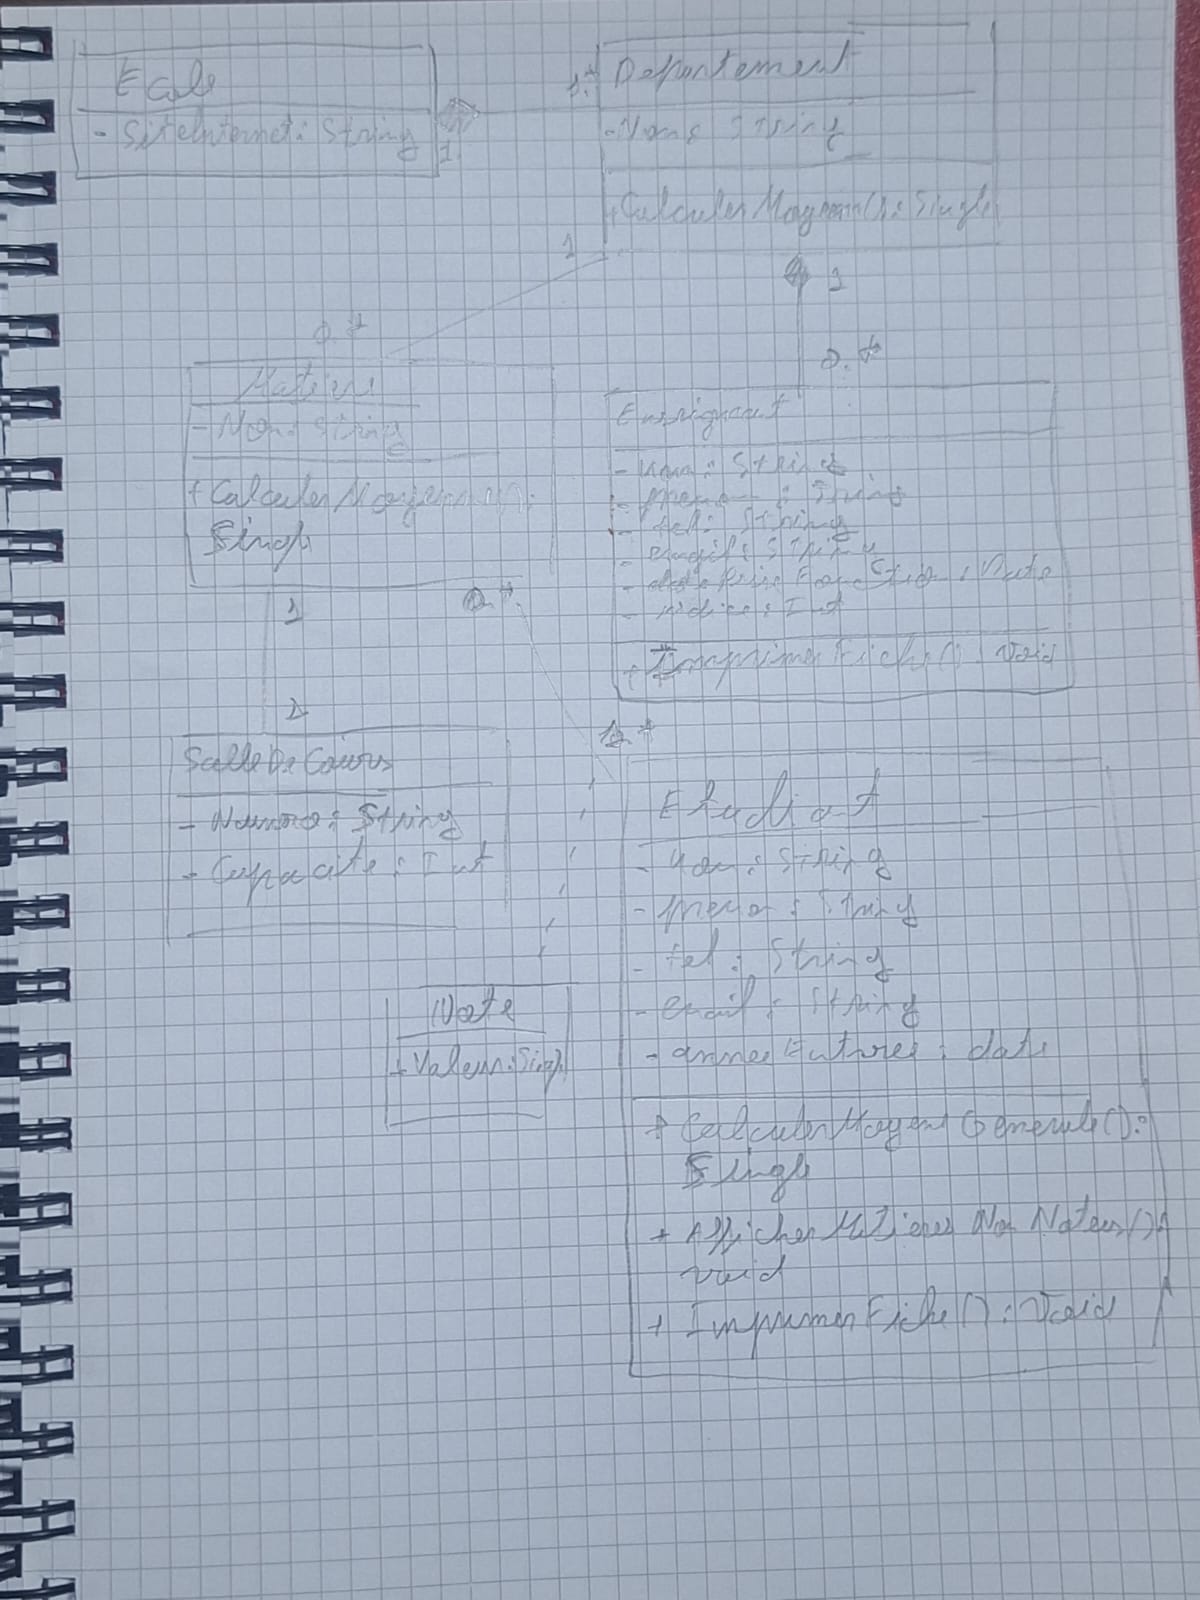 Ecole
- SiteInternet : String
1.
1.*
Departement
- Nom : String
+ CalculerMoyenne() : Single
1
1
0.*
0.*
Matiere
- Nom : String
+ CalculerMoyenne() :
Single
Enseignant
- nom : String
- prenom : String
- tel : String
- email : String
- datePriseFonction : Date
- indice : Int
+ ImprimerFiche() : Void
1
0.*
SalleDeCours
- Numero : String
- Capacite : Int
Etudiant
- nom : String
- prenom : String
- tel : String
- email : String
- anneeEntree : date
+ CalculerMoyenneGenerale() :
Single
+ AfficherMatieresNonNotees() :
void
+ ImprimerFiche() : Void
Note
+ Valeur : Single